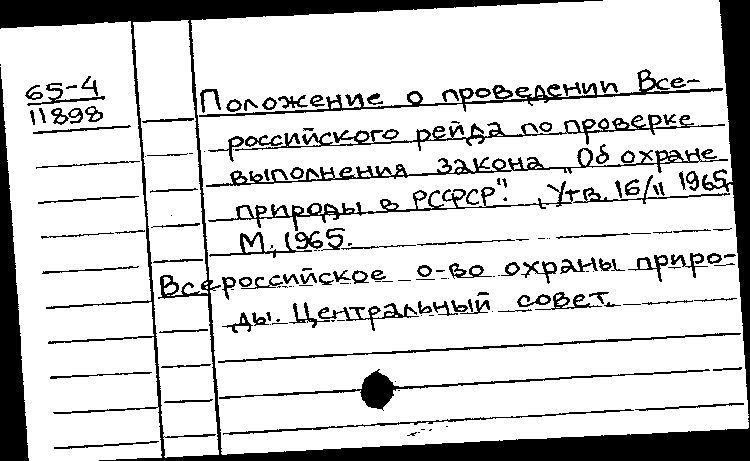 65-4
11898
Положение о проведении Все-
российского рейда по проверке
выполнения закона „Об охране
природы в РСФСР". Утв. 16/II 1965,
М., 1965.
Всероссийское о-во охраны приро-
ды. Центральный совет.